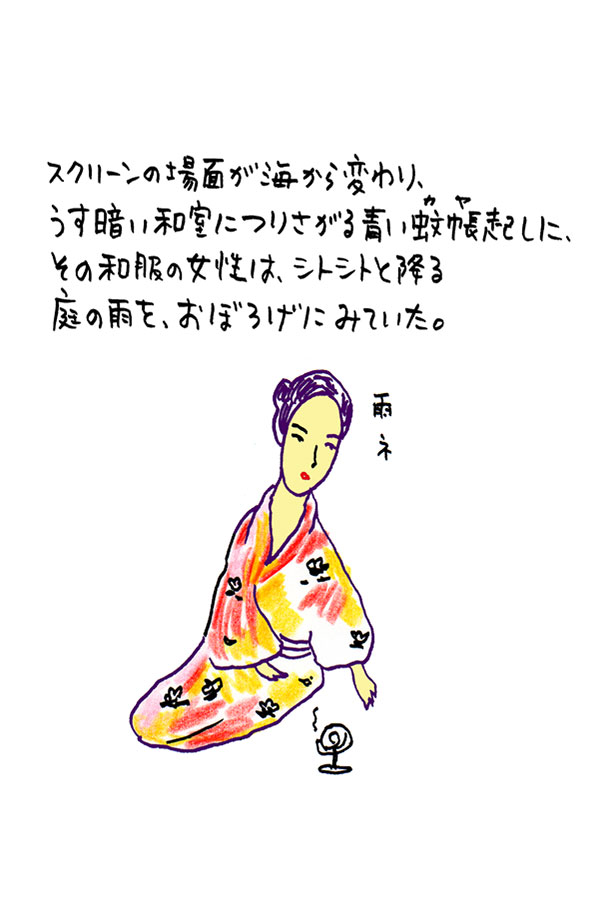 スクリーンの場面が海から変わり、
うす暗い和室につりさがる青い蚊帳起しに、
カヤ
その和服の女性は、シトシトと降る
庭の雨を、おぼろげにみていた。
雨ネ